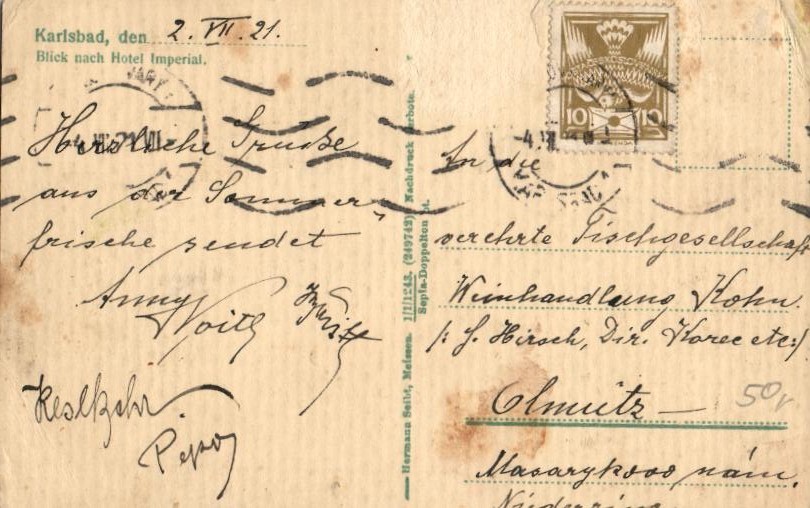 Karlsbad, den 2. VII. 21.
Blick nach Hotel Imperial.
Herzliche Grüsse
aus der Sommer-
frische sendet
Anny
Woitl
Hermann Seibt, Meissen. 1/1/1243. (249742) Nachdruck verboten.
Sepia-Doppelton
10 10
An die
verehrte Tischgesellschaft
Weinhandlung Kohn.
/: S. Hirsch, Dir. Korec etc:/
Olmütz
50
Masarykovo nám.
Niederring